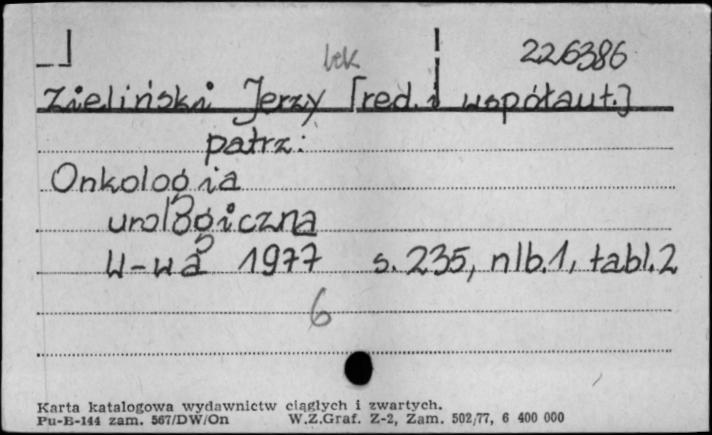 lek 226386
Zieliński Jerzy [red. i współaut.]
patrz:
Onkologia
urologiczna
W-wa 1977 s. 235, nlb.1, tabl.2
6
Karta katalogowa wydawnictw ciągłych i zwartych.
Pu-B-144 zam. 567/DW/On W.Z.Graf. Z-2, Zam. 502/77, 6 400 000